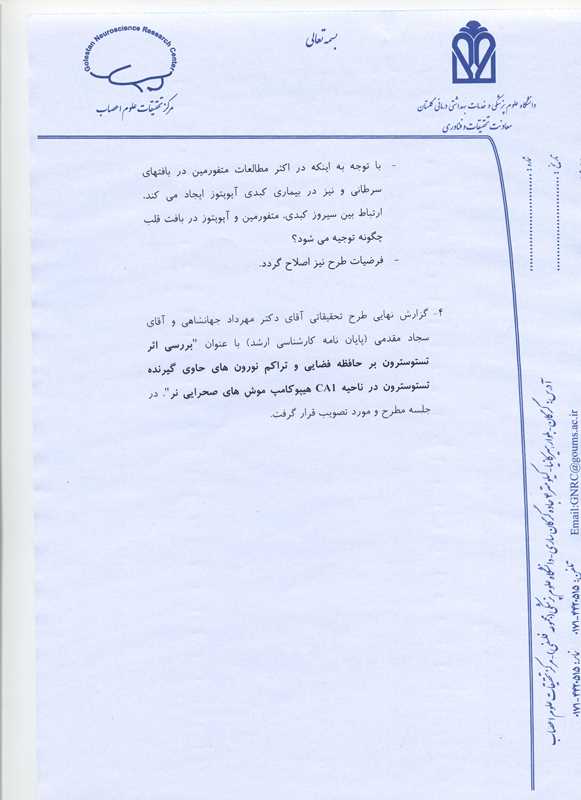 بسمه تعالی
Golestan Neuroscience Research Center
مرکز تحقیقات علوم اعصاب
دانشگاه علوم پزشکی و خدمات بهداشتی درمانی گلستان
معاونت تحقیقات و فناوری
- با توجه به اینکه در اکثر مطالعات متفورمین در بافتهای
سرطانی و نیز در بیماری کبدی آپوپتوز ایجاد می کند.
ارتباط بین سیروز کبدی، متفورمین و آپوپتوز در بافت قلب
چگونه توجیه می شود؟
- فرضیات طرح نیز اصلاح گردد.
۴- گزارش نهایی طرح تحقیقاتی آقای دکتر مهرداد جهانشاهی و آقای
سجاد مقدمی (پایان نامه کارشناسی ارشد) با عنوان "بررسی اثر
تستوسترون بر حافظه فضایی و تراکم نورون های حاوی گیرنده
تستوسترون در ناحیه CA1 هیپوکامپ موش های صحرایی نر". در
جلسه مطرح و مورد تصویب قرار گرفت.
تاریخ:
آدرس: گرگان- جاده گرگان ساری- دانشگاه علوم پزشکی - مرکز تحقیقات علوم اعصاب
تلفن: ۰۱۷۱-۴۴۲۰۵۱۵
Email:GNRC@goums.ac.ir